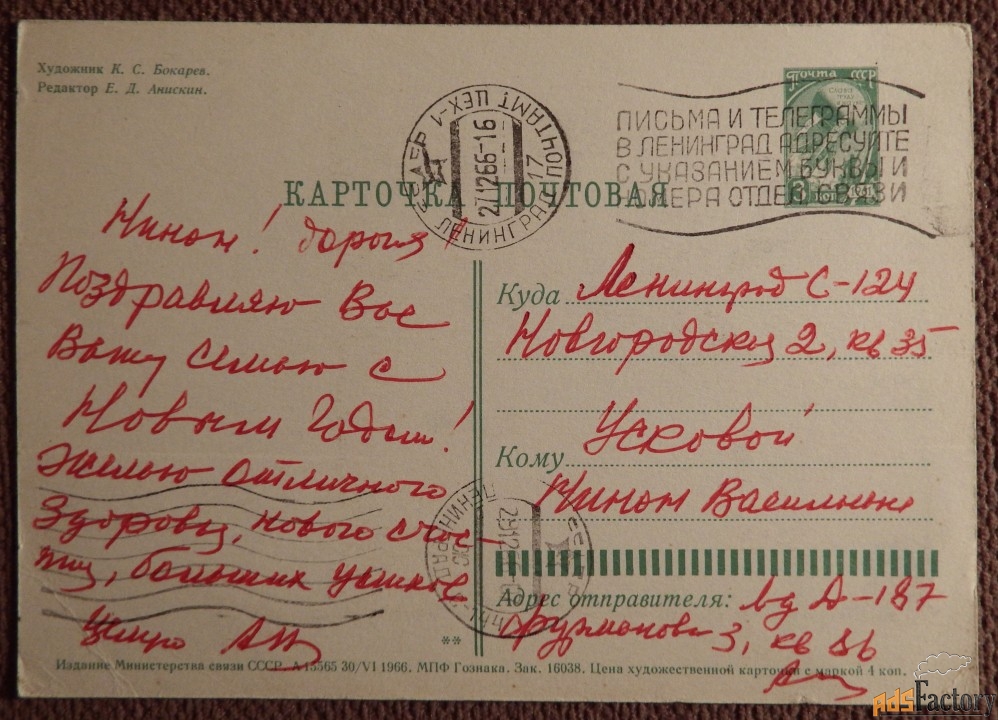 Художник К. С. Бокарев.
Редактор Е. Д. Анискин.
Почта СССР
ПИСЬМА И ТЕЛЕГРАММЫ
В ЛЕНИНГРАД АДРЕСУЙТЕ
С УКАЗАНИЕМ БУКВЫ И
НОМЕРА ОТДЕЛ. СВЯЗИ
СССР ПОЧТАМТ ЦЕХ-1
271266-16
ЛЕНИНГРАД 17
КАРТОЧКА ПОЧТОВАЯ
Нинон! дорогая
Поздравляю Вас
Вашу семью с
Новым Годом!
Желаю отличного
Здоровья, нового счас-
тия, больших успехов
Целую
Куда Ленинград С-124
Новгородская 2, кв 35
Кому Усковой
Нинон Васильевне
Адрес отправителя: Лд Д-187
Фурманова 3, кв 86
**
Издание Министерства связи СССР. А-13565 30/VI 1966. МПФ Гознака. Зак. 16038. Цена художественной карточки с маркой 4 коп.
AdsFactory